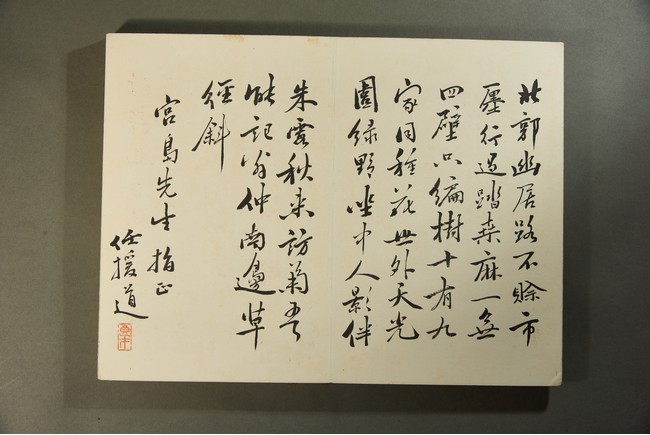 北郭幽居路不賒市
廛行過踏桑麻一無
四壁只編樹十有九
家同種花世外天光
圍綠野坐中人影伴
朱霞秋來訪菊吾
能記翁仲南邊草
徑斜
宮島先生 指正
任援道